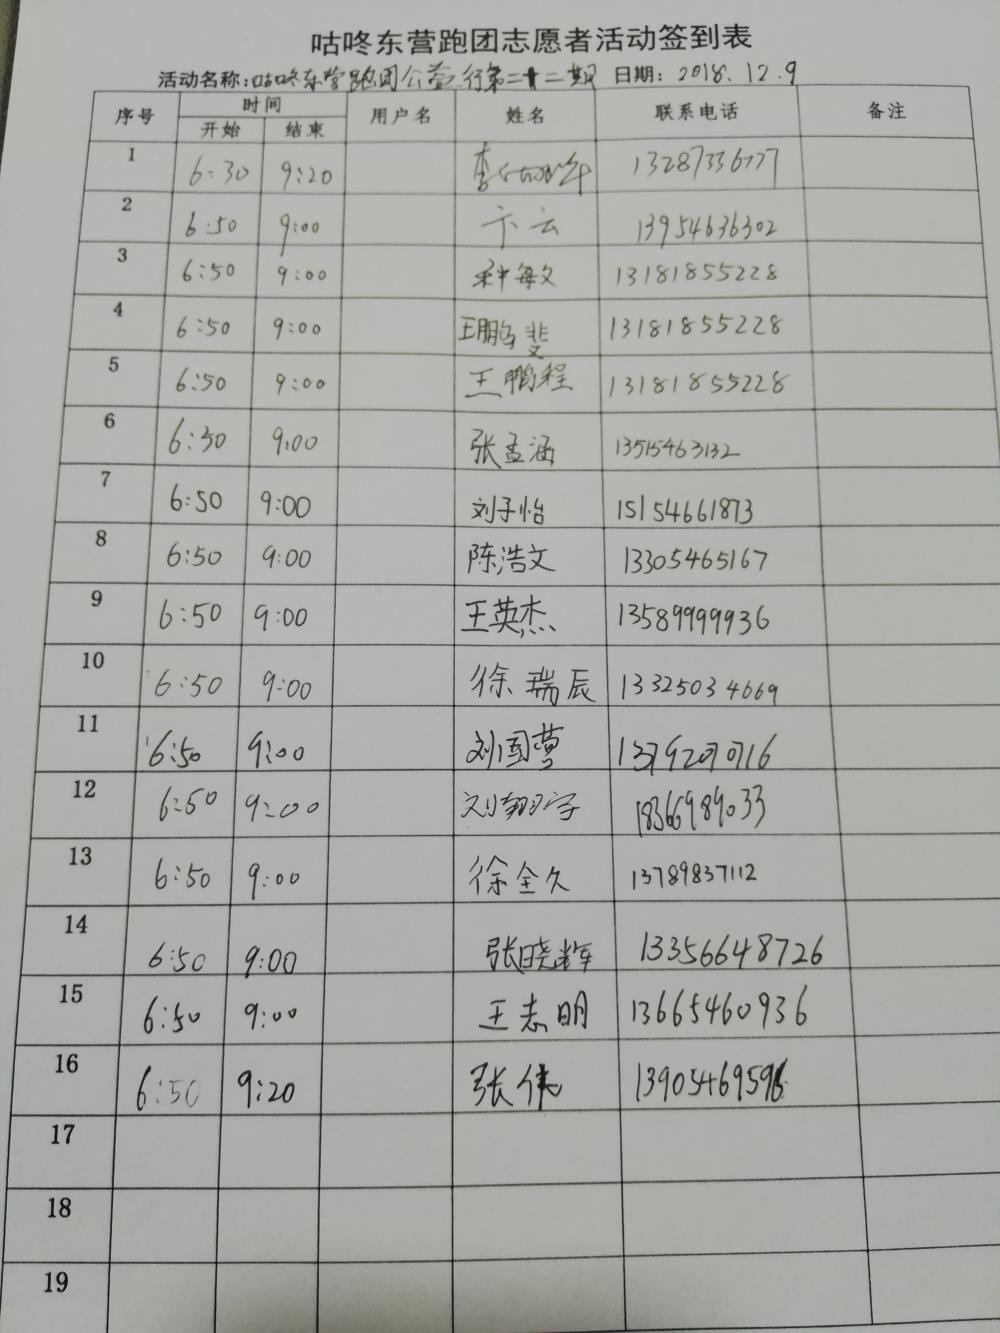 咕咚东营跑团志愿者活动签到表
活动名称:咕咚东营跑团公益行第二十二期 日期: 2018.12.9
序号 时间 用户名 姓名 联系电话 备注
开始 结束
1 6:30 9:20 13287336777
2 6:50 9:00 卞云 13954636302
3 6:50 9:00 敏 13181855228
4 6:50 9:00 王鹏斐 13181855228
5 6:50 9:00 王鹏程 13181855228
6 6:30 9:00 张孟涵 13515463132
7 6:50 9:00 刘子怡 15154661873
8 6:50 9:00 陈浩文 13305465167
9 6:50 9:00 王英杰 13589999936
10 6:50 9:00 徐瑞辰 13325034669
11 6:50 9:00 刘国
12 6:50 9:00 刘翔宇 18366989033
13 6:50 9:00 徐全久 13789837112
14 6:50 9:00 张晓辉 13356648726
15 6:50 9:00 王志明 13665460936
16 6:50 9:20 张伟 13905469596
17
18
19